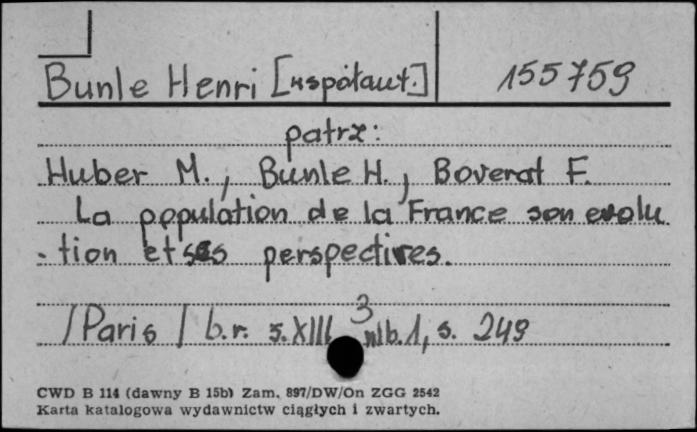 Bunle Henri [współaut.] 155759
patrz:
Huber M., Bunle H., Boverat F.
La population de la France son evolu
-tion et ses perspectives.
/Paris/ b.r. s. XIII, 3 nlb. 1, s. 249
CWD B 114 (dawny B 15b) Zam. 897/DW/On ZGG 2542
Karta katalogowa wydawnictw ciągłych i zwartych.